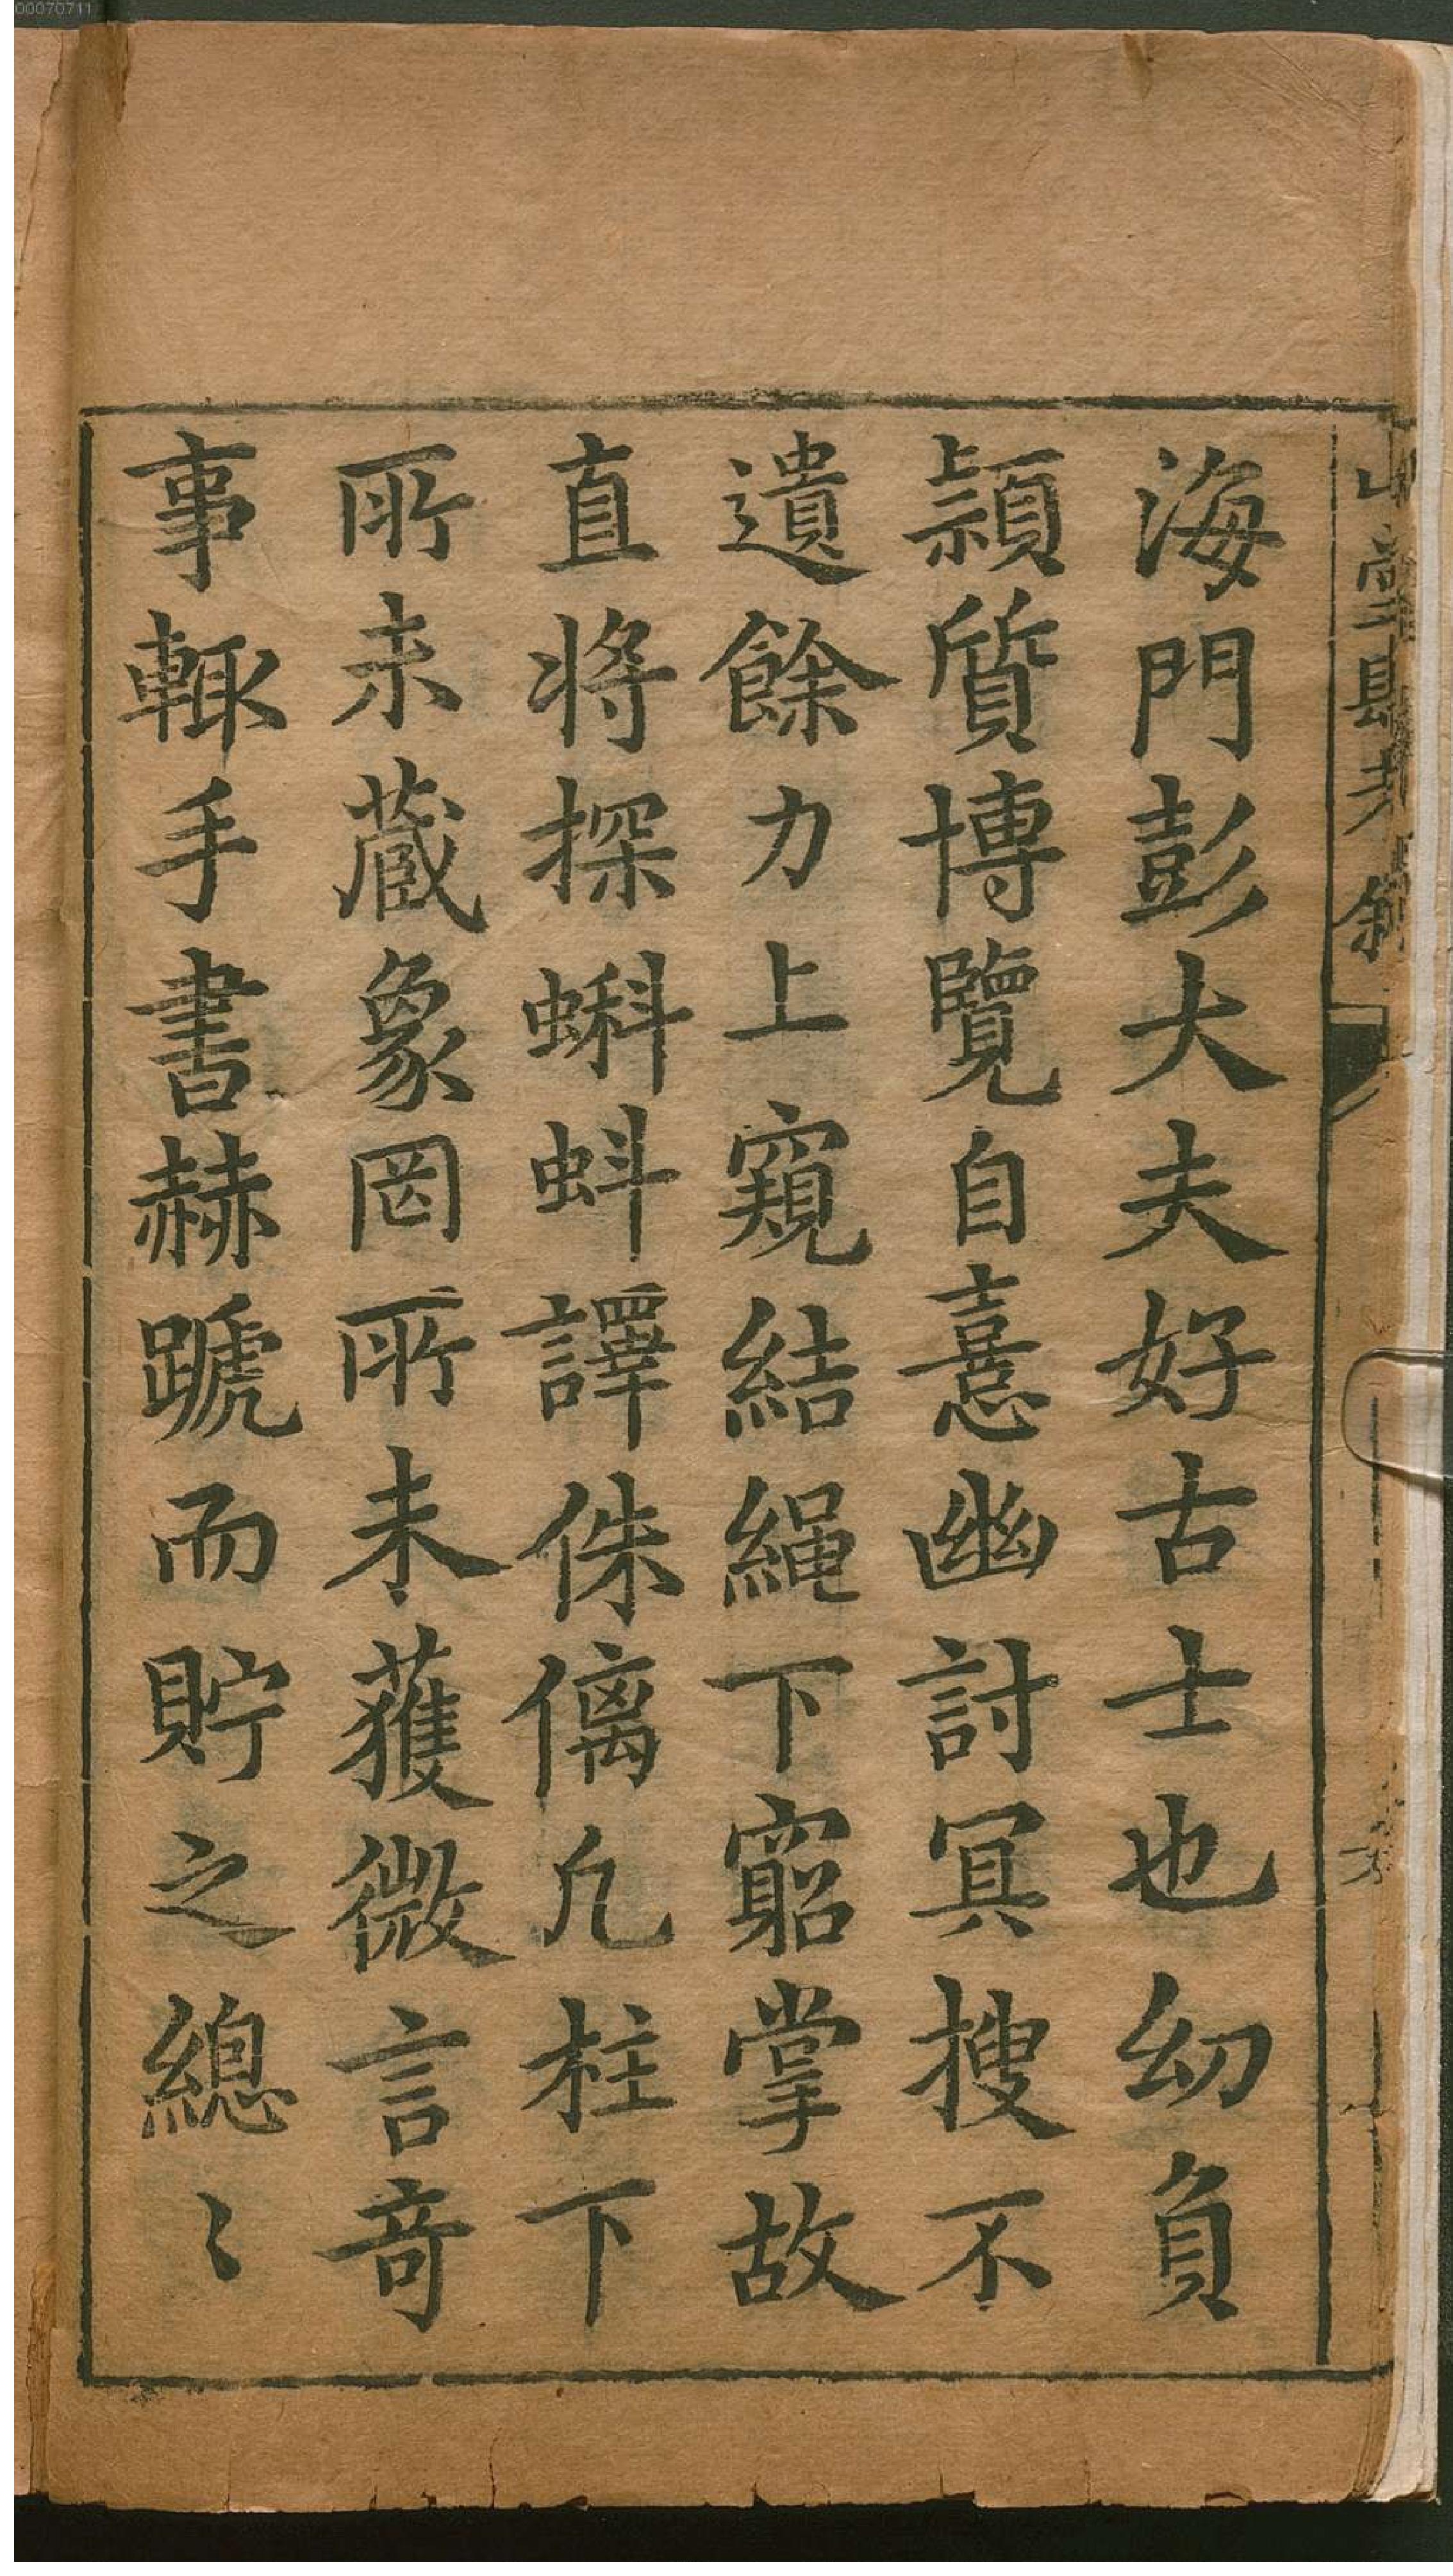 00070711
山堂肆考 敘
海門彭大夫好古士也幼負
穎質博覽自憙幽討冥搜不
遺餘力上窺結繩下窮掌故
直將探蝌蚪譯侏㒧凡柱下
所未藏象罔所未獲微言奇
事輙手書赫蹏而貯之總〻